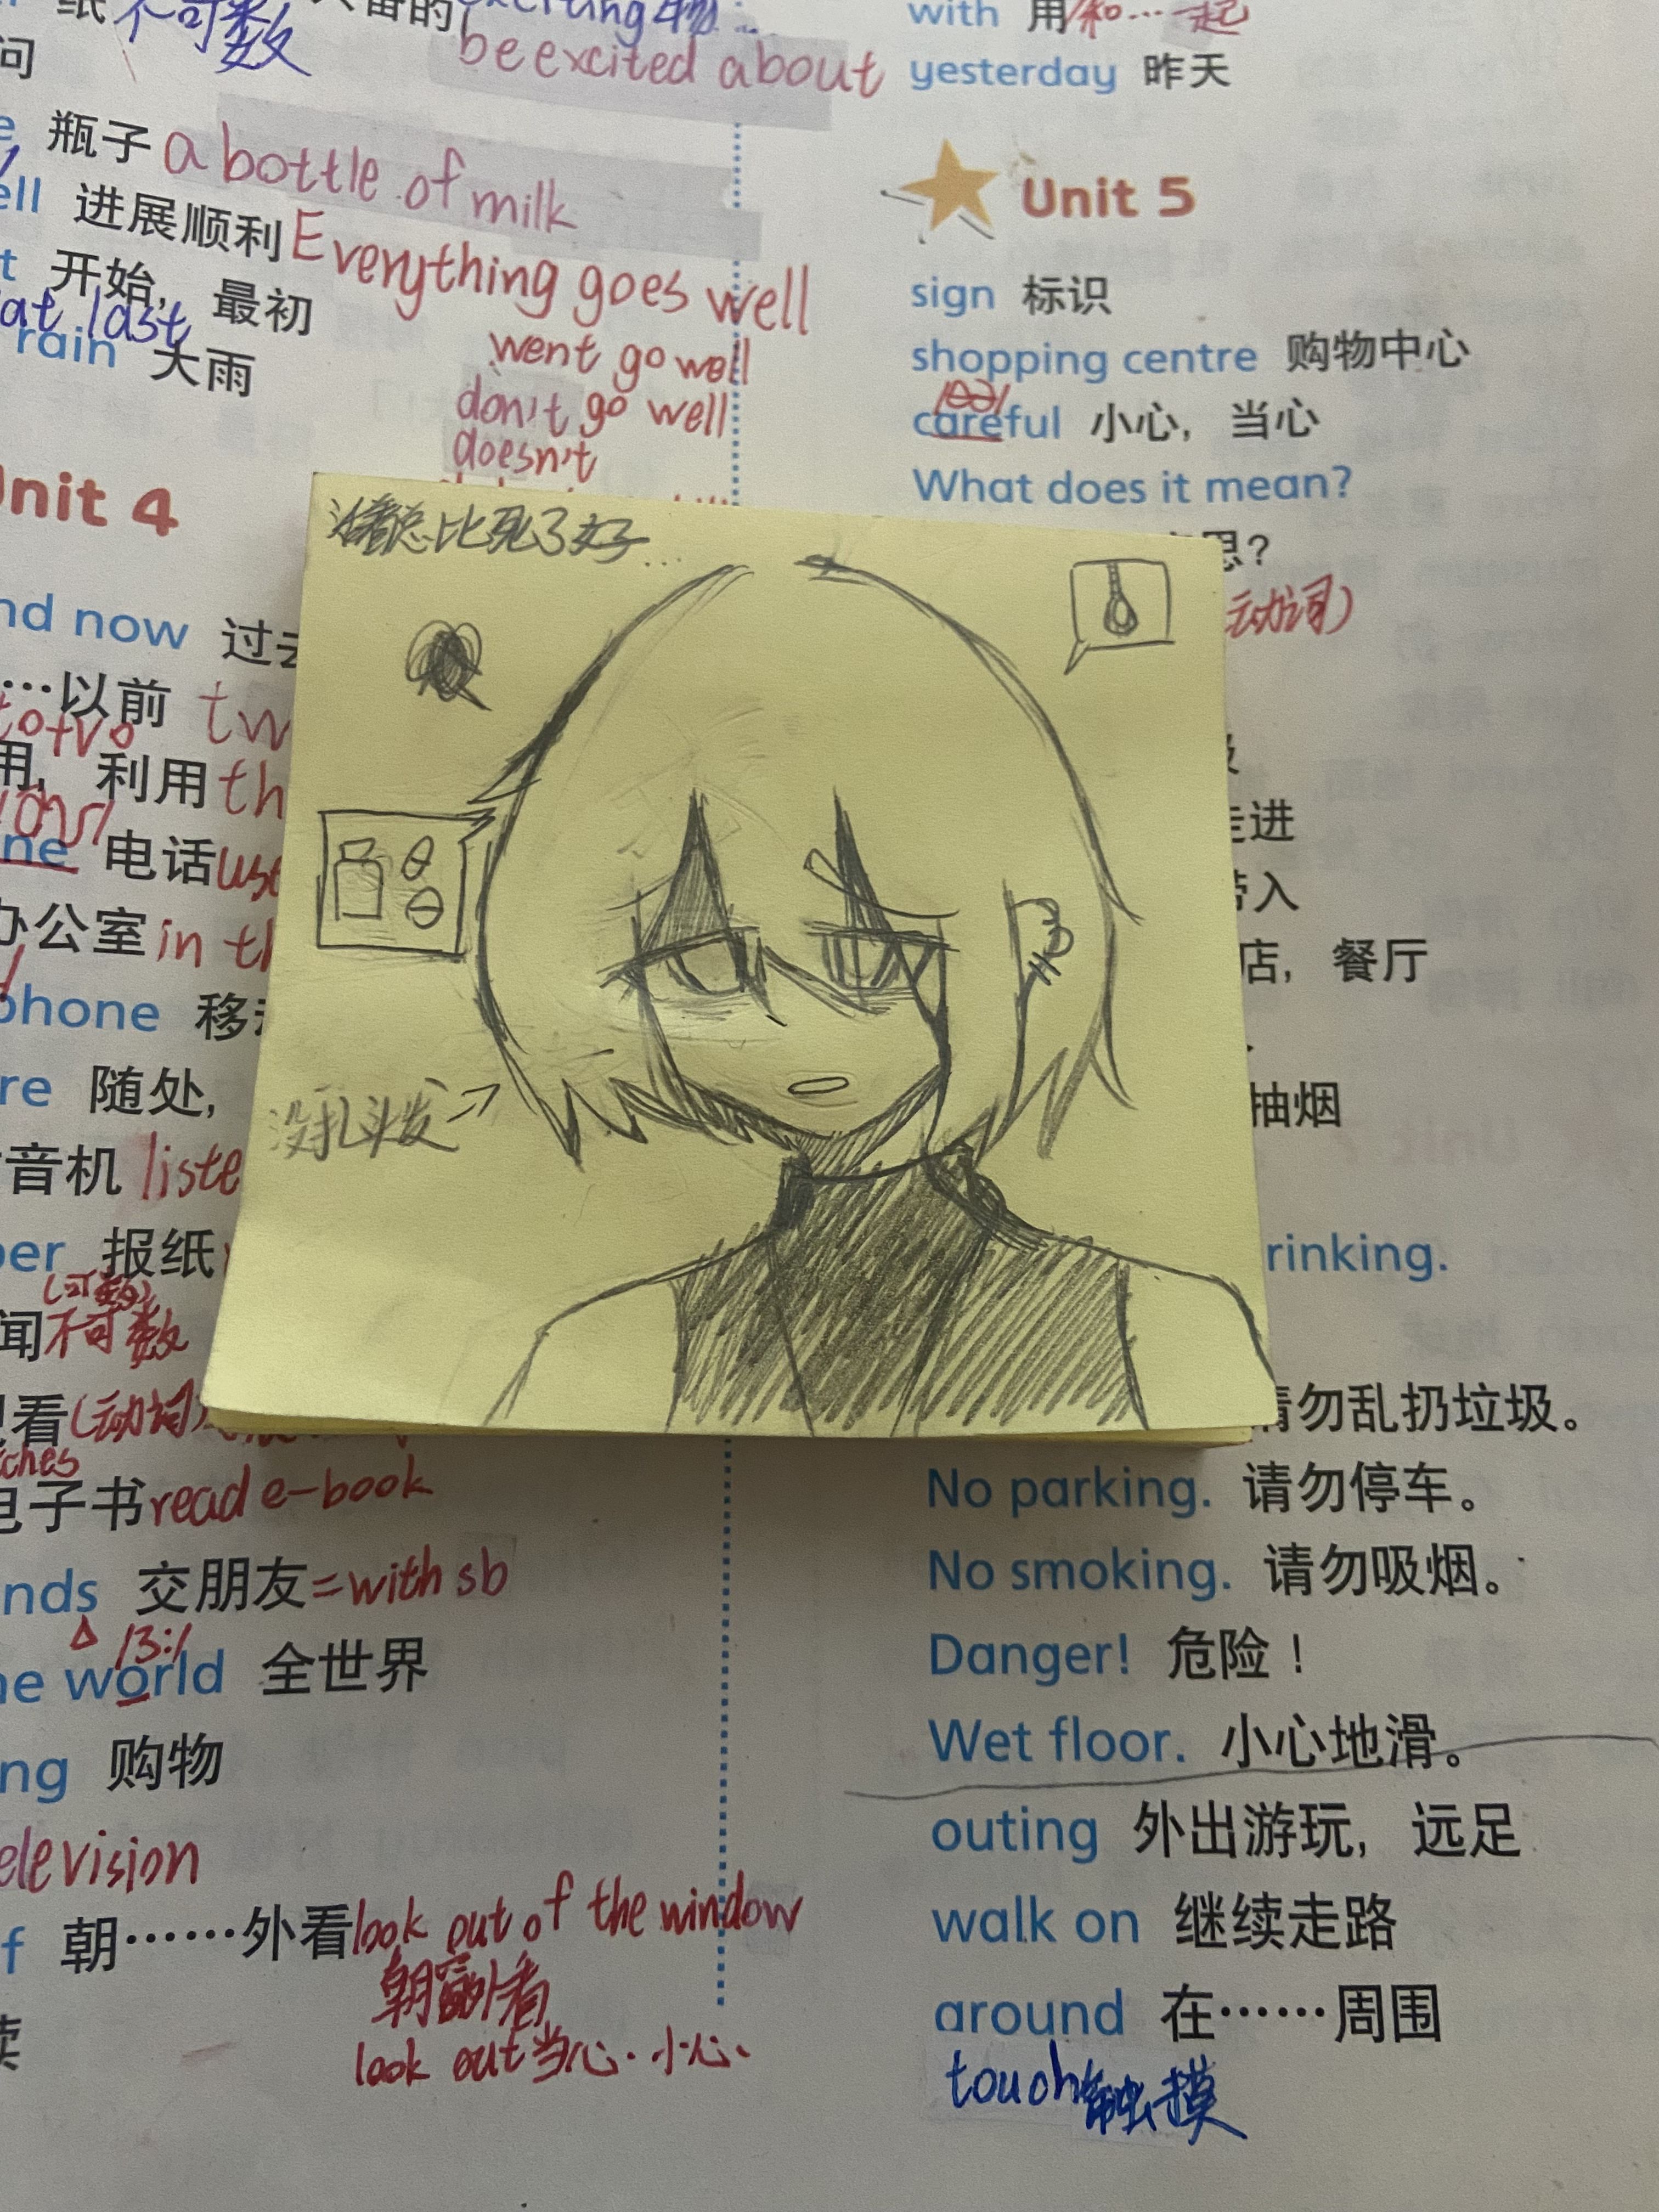 纸 不可数
be excited about
问
瓶子 a bottle of milk
ell 进展顺利 Everything goes well
t 开始，最初
at last
rain 大雨
went go well
don't go well
doesn't
Unit 4
nd now 过去
……以前 tw
to+vo
用，利用 th
ne 电话 use
办公室 in th
phone 移
re 随处，
音机 liste
per 报纸
(可数)
闻 不可数
看(动词)
ches
电子书 read e-book
nds 交朋友=with sb
/3:/
he world 全世界
ng 购物
elevision
f 朝……外看 look out of the window
朝窗外看
look out 当心.小心、
活着总比死了好...
没扎头发
with 用/和…一起
yesterday 昨天
Unit 5
sign 标识
shopping centre 购物中心
careful 小心，当心
What does it mean?
思？
动词)
走进
带入
店，餐厅
抽烟
rinking.
请勿乱扔垃圾。
No parking. 请勿停车。
No smoking. 请勿吸烟。
Danger! 危险！
Wet floor. 小心地滑。
outing 外出游玩，远足
walk on 继续走路
around 在……周围
touch 触摸